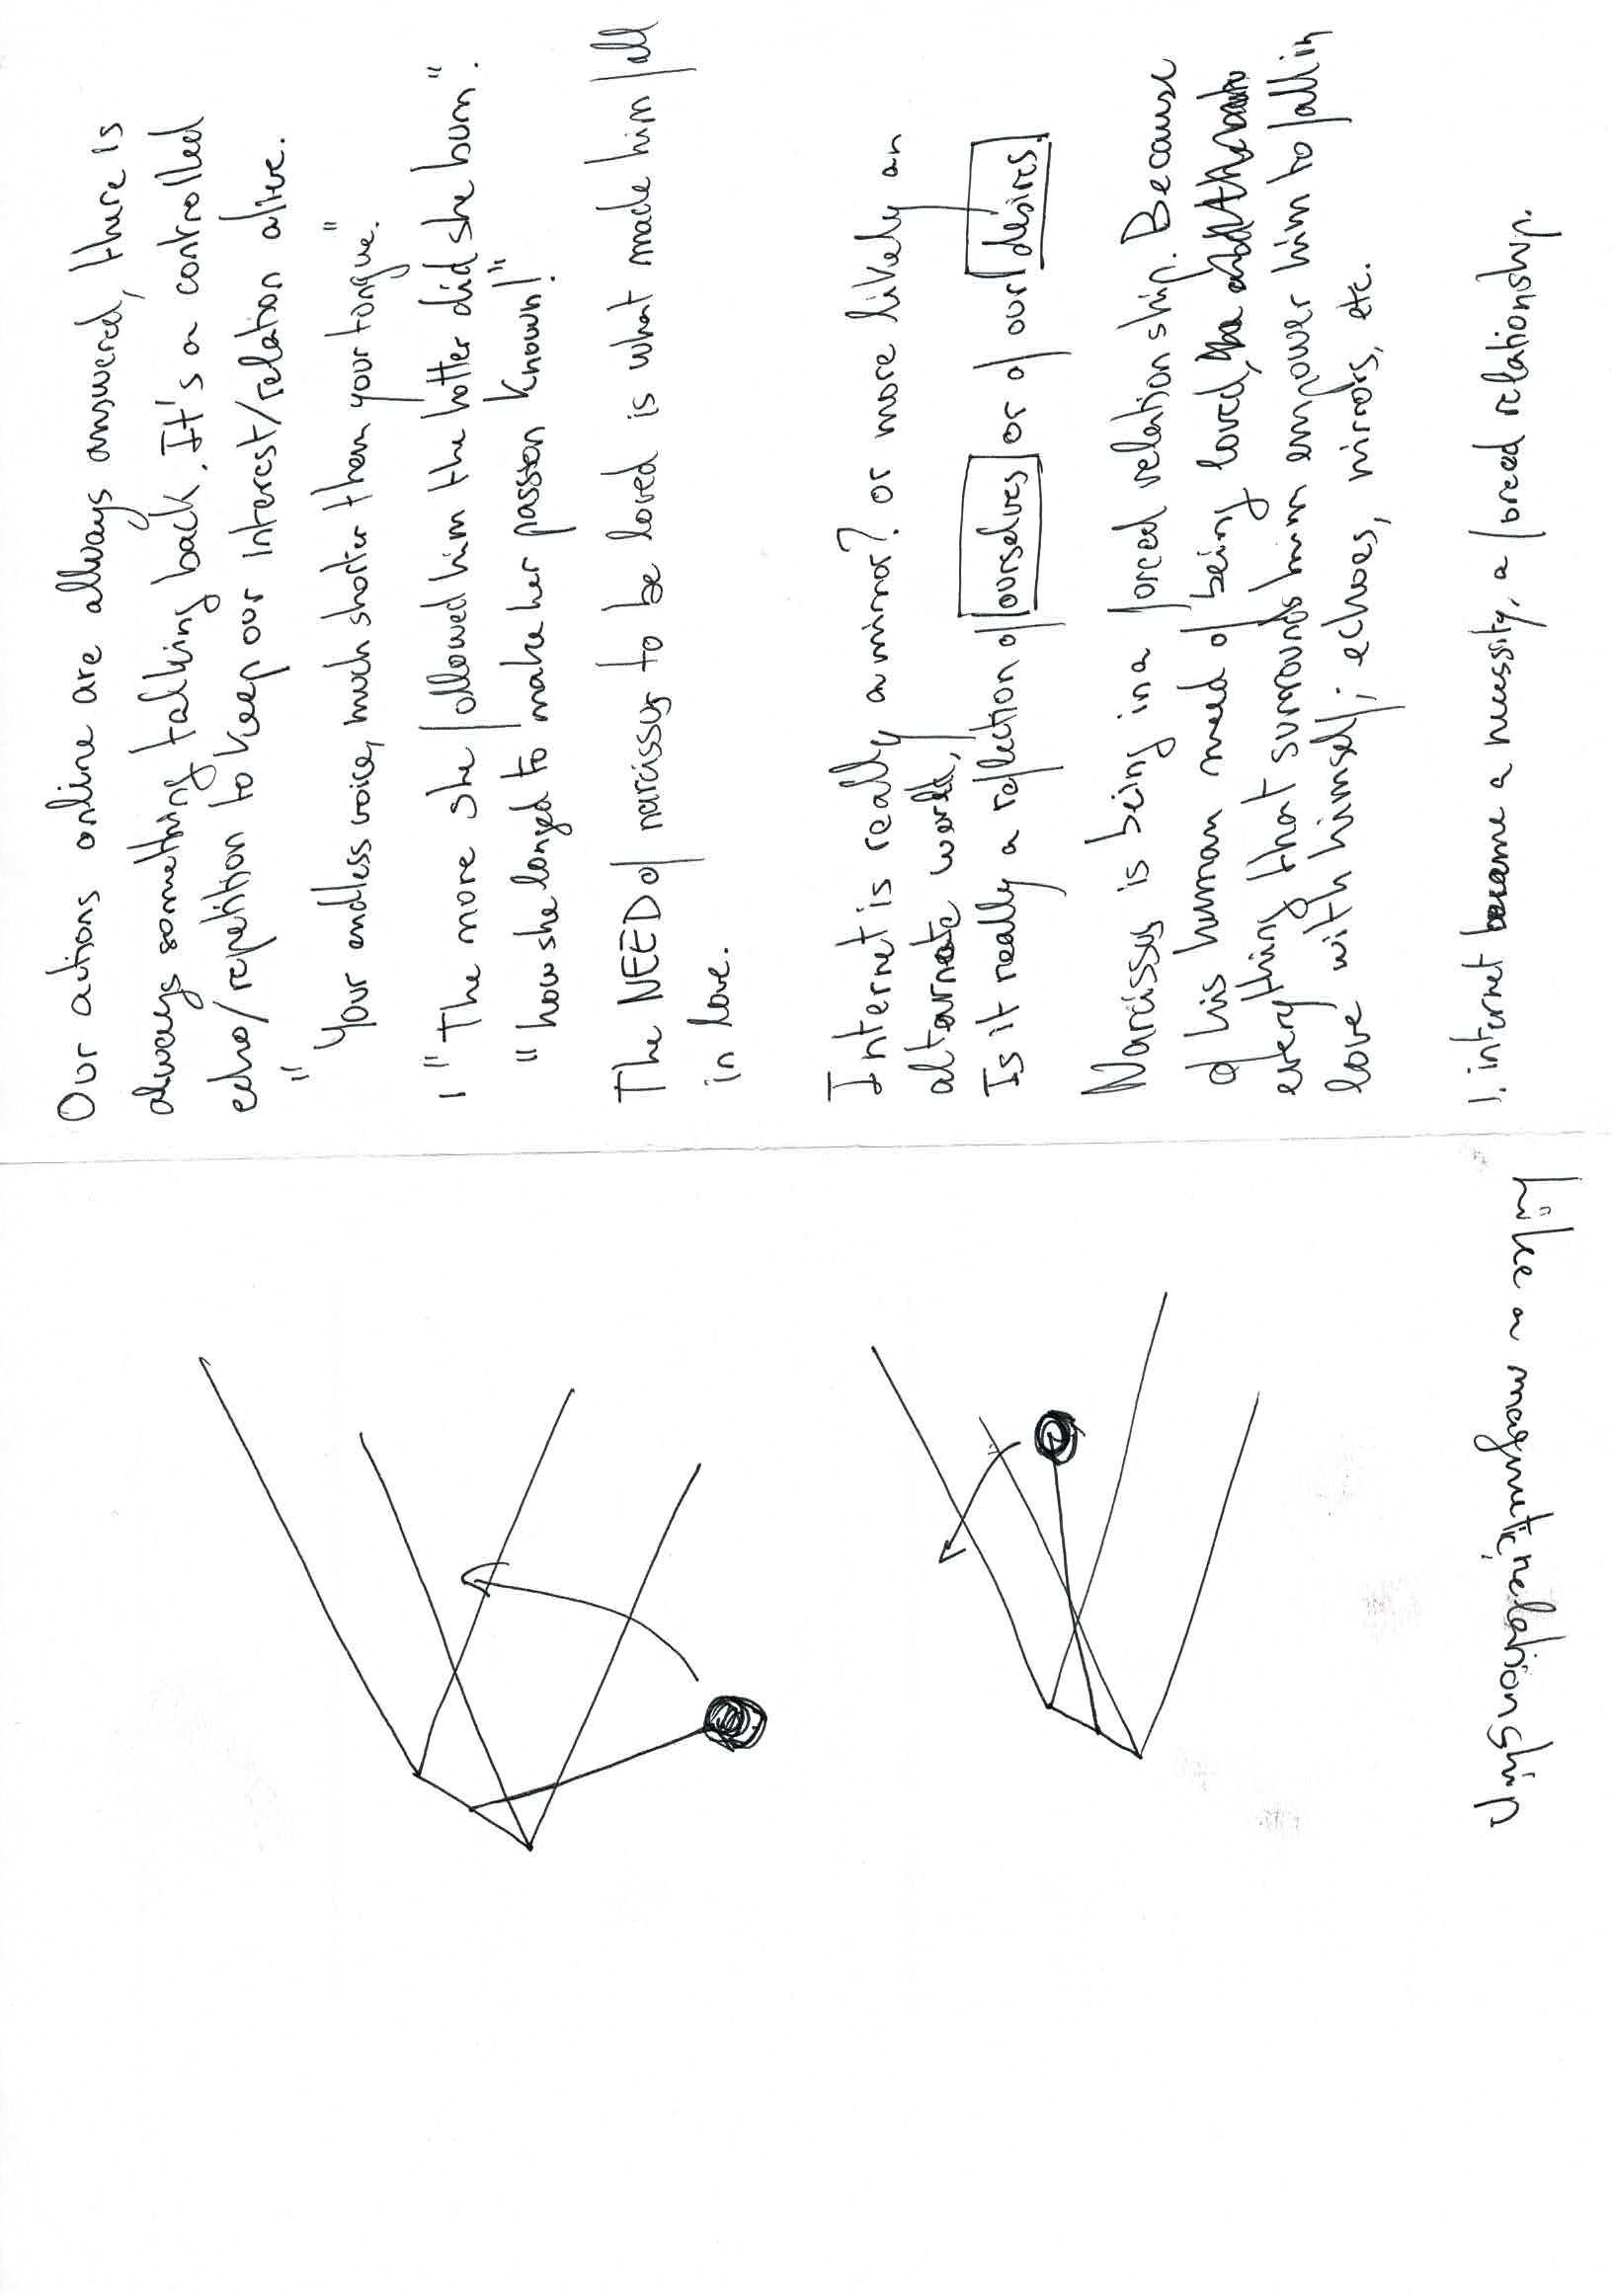 Our actions online are allways answered, there is
always something talking back. It's a controlled
echo/repetition to keep our interest/relation alive.
"Your endless voice, much shorter them your tongue."
1 "The more she followed him the hotter did she burn".
"how she longed to make her passion known!"
The NEED of narcissus to be loved is what made him fall
in love.
Internet is really a mirror? or more likely an
alternate world,
Is it really a reflection of ourselves or of our desires.
Narcissus is being in a forced relationship. Because
of his human need of being loved,
everything that surrounds him empower him to fall in
love with himself; echoes, mirrors, etc.
1. internet became a necessity, a forced relationship.
like a magmatic relationship